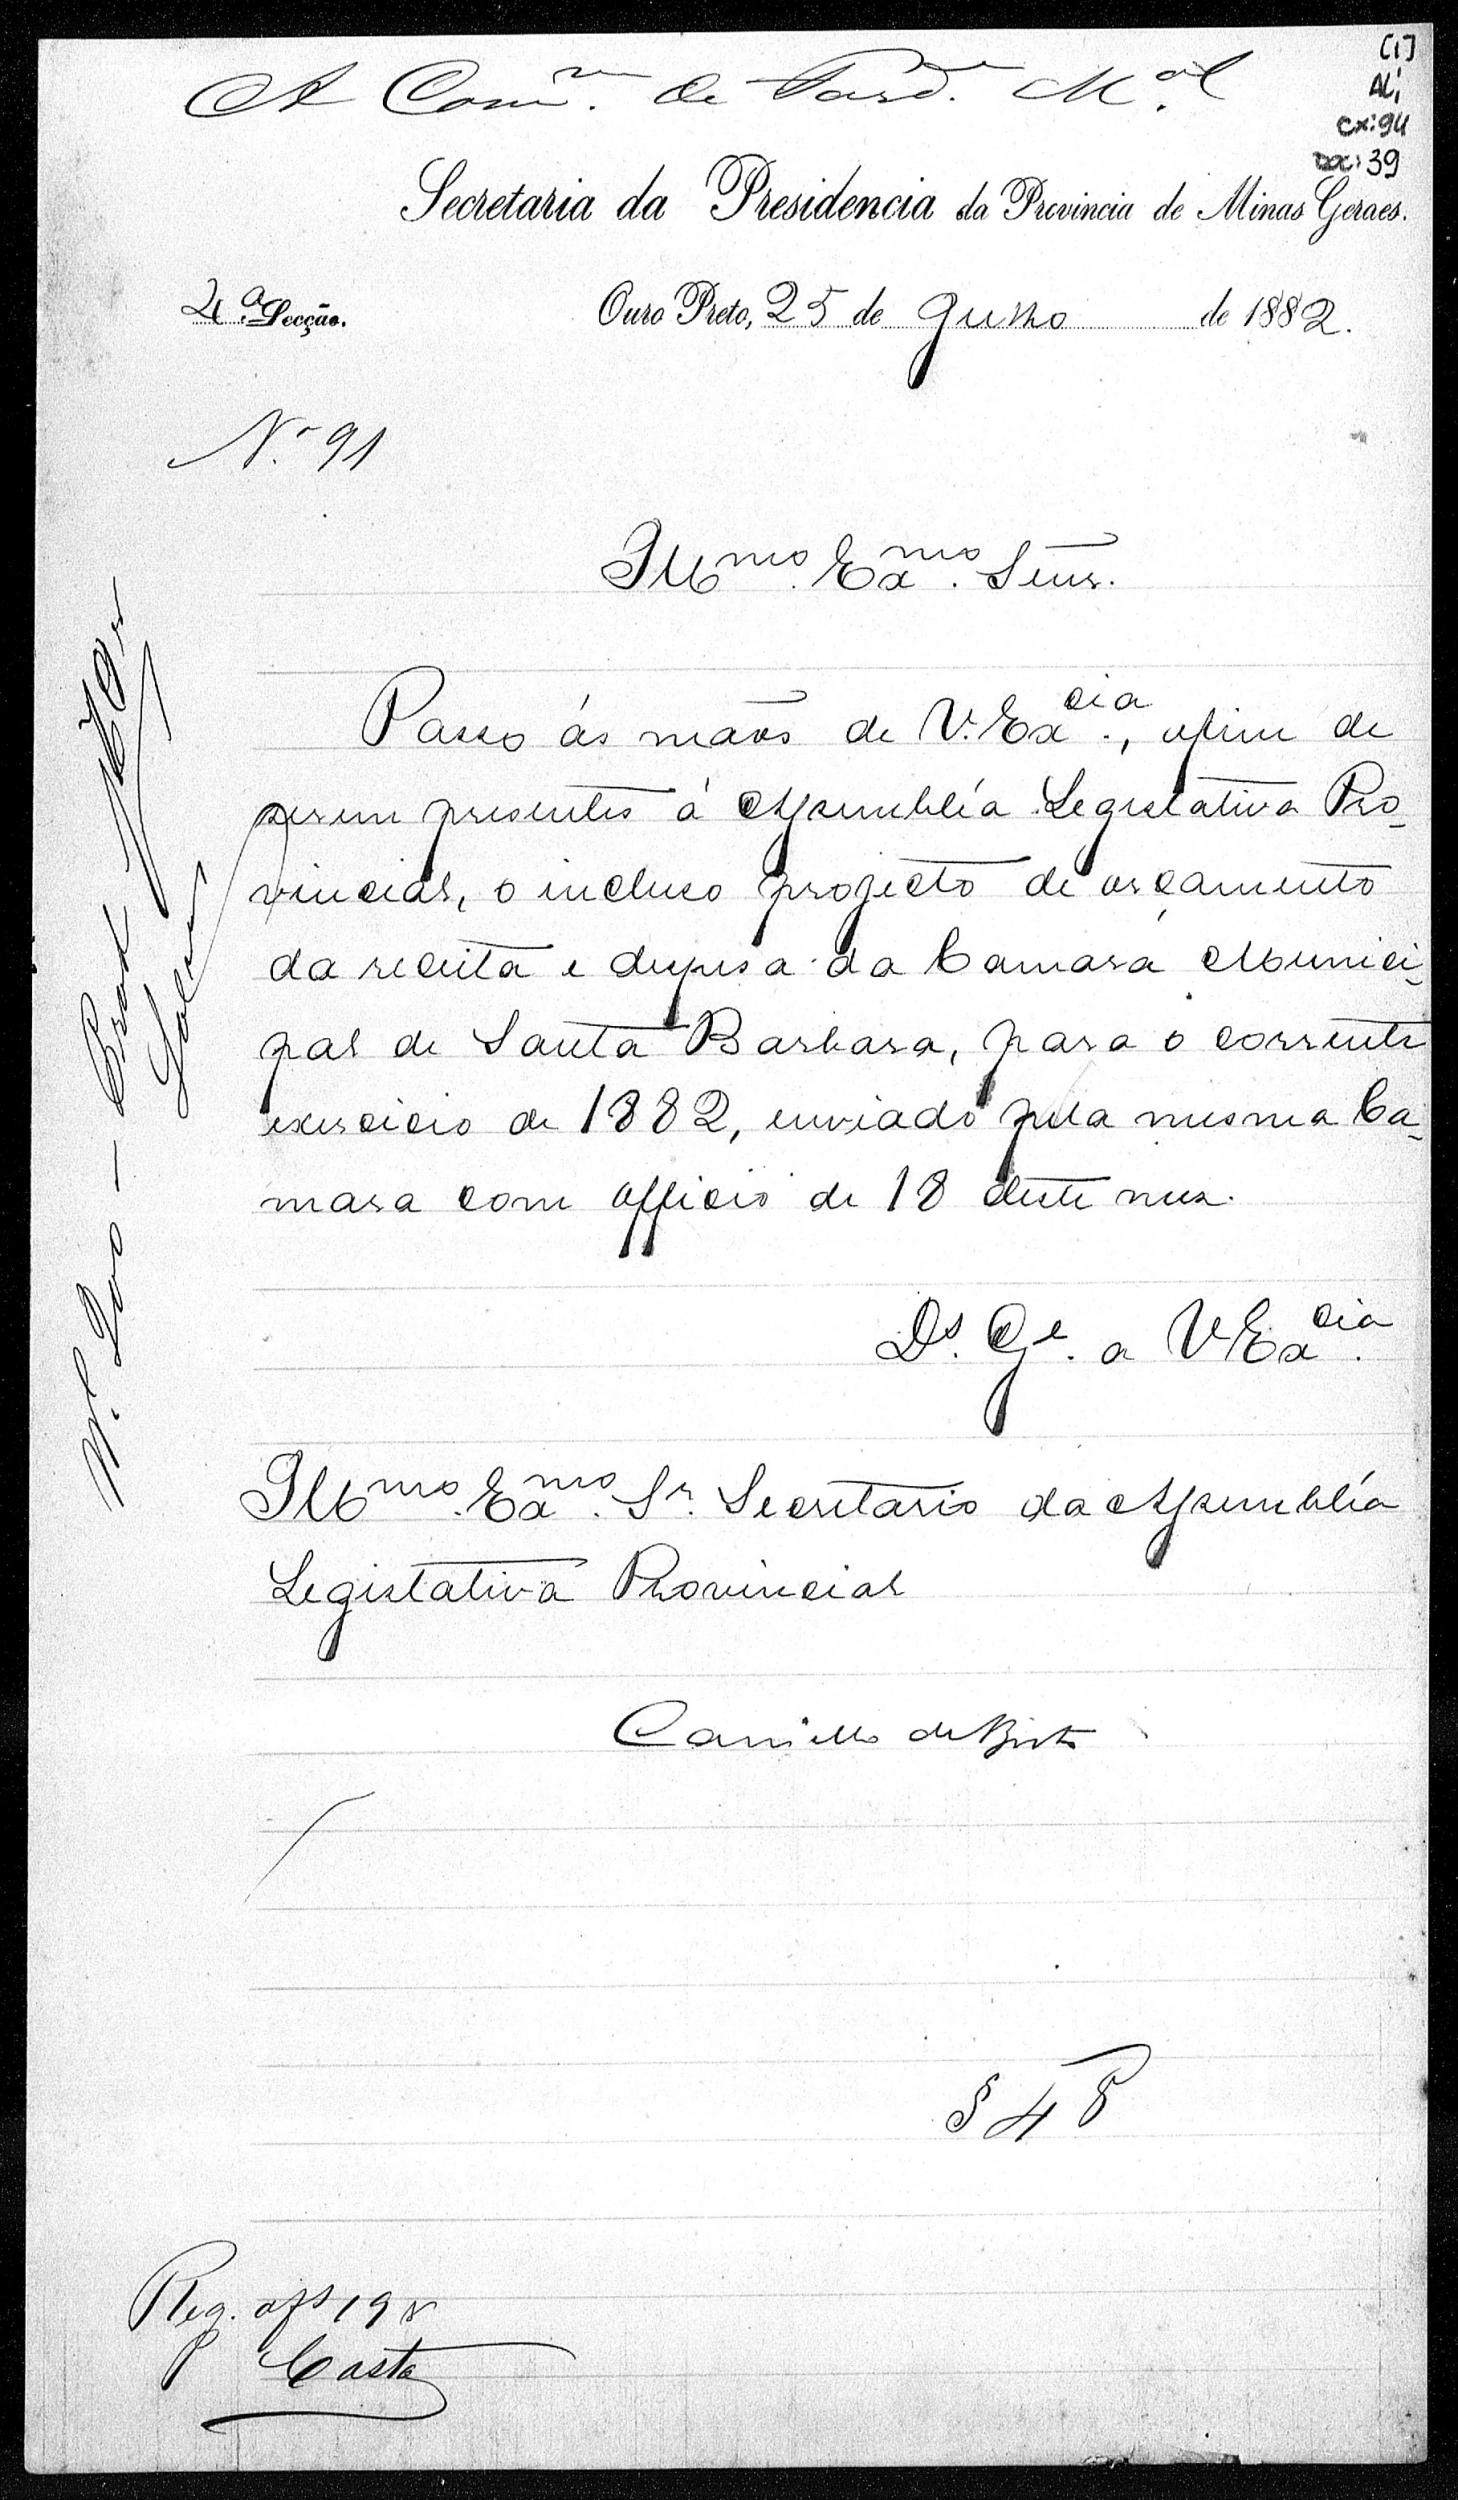 A Com.ᵐ de Faz.ᵈᵃ M.ᵃˡ
[1]
AL1
cx: 94
doc: 39
Secretaria da Presidencia da Provincia de Minas Geraes.
4.ª Secção.
Ouro Preto, 25 de Julho de 1882.
N.º 91
Illᵐᵒ. Exᵐᵒ. Senr.
Passo ás mãos de V. Exᶜⁱᵃ., afim de
serem presentes á Assembléa Legislativa Pro-
vincial, o incluso projecto de orçamento
da receita e despesa da Camara Munici-
pal de Santa Barbara, para o corrente
exercicio de 1882, enviado pela mesma Ca-
mara com officio de 18 deste mez.
Dˢ. Gᵉ. a V Exᶜⁱᵃ.
Illᵐᵒ. Exᵐᵒ. Sr. Secretario da Assembléa
Legislativa Provincial
Camillo de Brito
§ 48
Reg. a fs 198
Costa